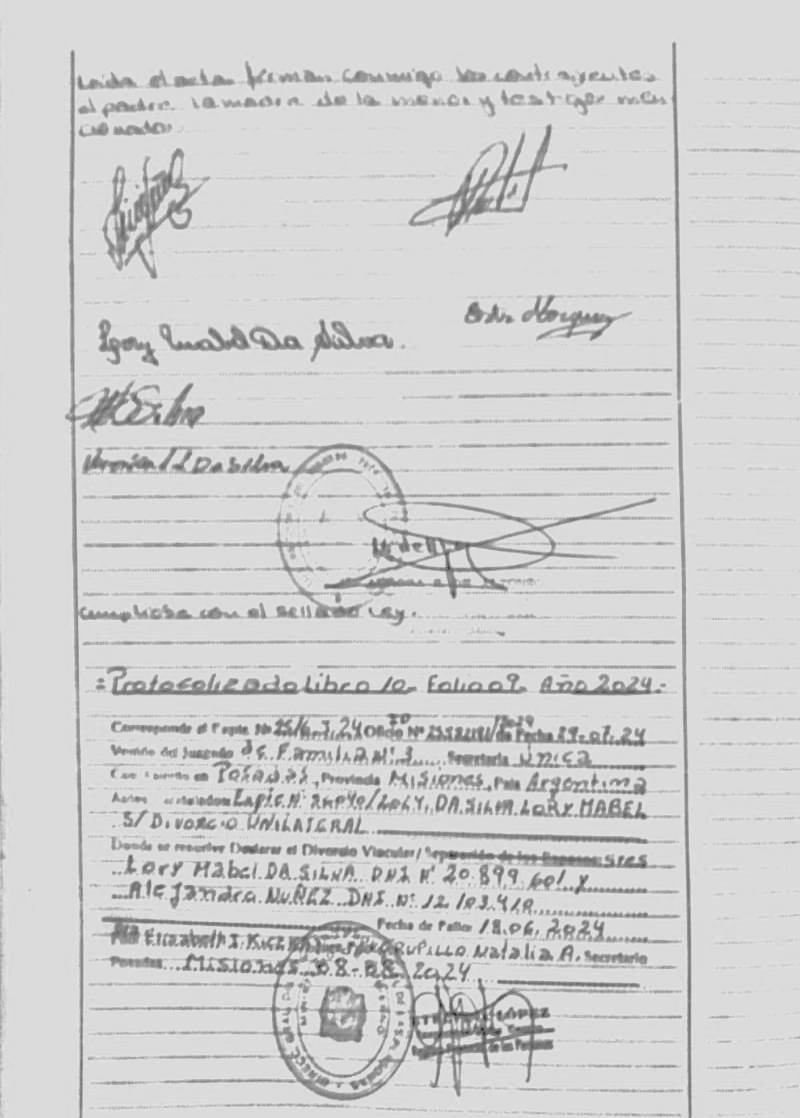 Leida el acta firman conmigo los contrayentes
el padre la madre de la menor y testigos men
cionados.
Lory Mabel Da Silva.
Veronica L Da Silva
Cumplióse con el sellado Ley.
= Protocolizado Libro 10 Folio 09 Año 2024.-
Corresponde al Expte. Nº Oficio Nº de Fecha 29-07-24
Venido del Juzgado de Familia Nº 3 Secretaría Única
Con asiento en Posadas, Provincia Misiones, País Argentina
Autos caratulados Expte. Nº DA SILVA LORY MABEL
S/ DIVORCIO UNILATERAL
Donde se resolve Declarar el Divorcio Vincular/ Separación de los Esposos: Sres
Lory Mabel DA SILVA DNI Nº 20.899.601 y
Alejandro NUÑEZ DNI Nº 12.103.410
Fecha de Fallo: 18.06.2024
Elizabeth I. Natalia A. Secretario
Posadas Misiones 08-08-2024
LÓPEZ